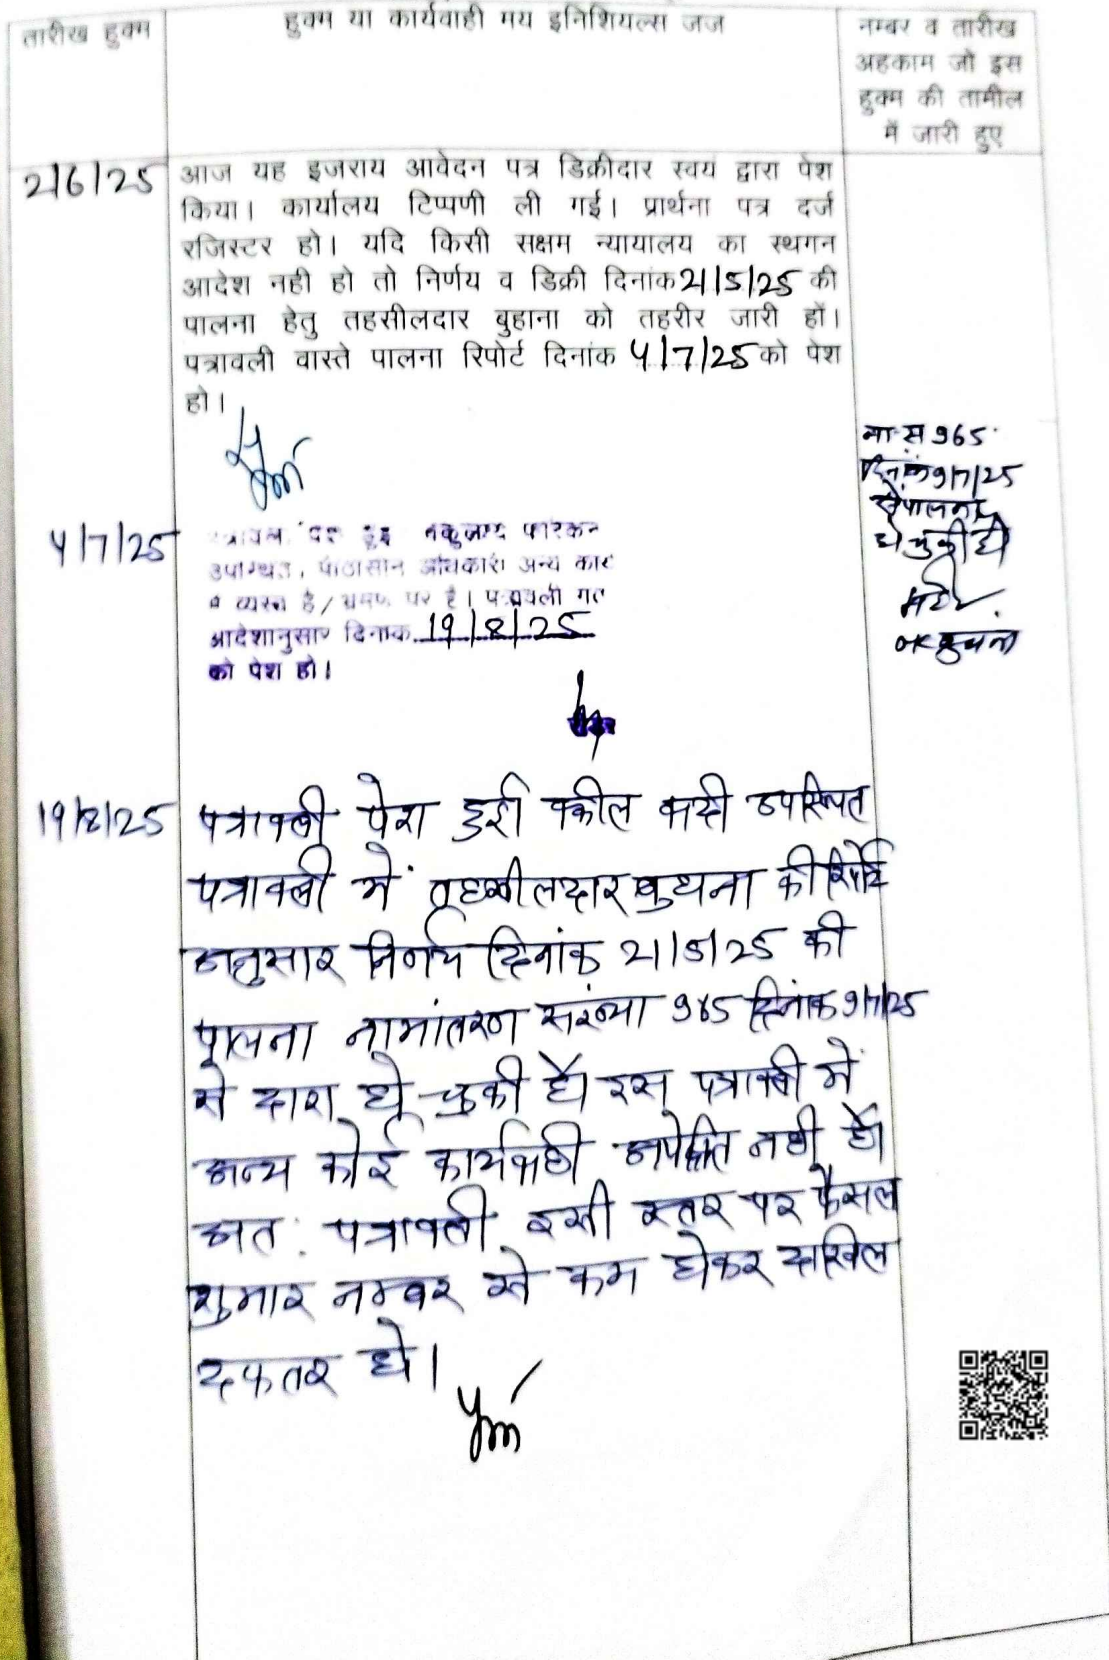 तारीख हुक्म
हुक्म या कार्यवाही मय इनिशियल्स जज
नम्बर व तारीख
अहकाम जो इस
हुक्म की तामील
में जारी हुए
2/6/25
आज यह इजराय आवेदन पत्र डिक्रीदार स्वयं द्वारा पेश
किया। कार्यालय टिप्पणी ली गई। प्रार्थना पत्र दर्ज
रजिस्टर हो। यदि किसी सक्षम न्यायालय का स्थगन
आदेश नही हो तो निर्णय व डिक्री दिनांक 21/5/25 की
पालना हेतु तहसीलदार बुहाना को तहरीर जारी हों।
पत्रावली वास्ते पालना रिपोर्ट दिनांक 4/7/25 को पेश
हो।
ना.स 965
दिनांक 9/7/25
से पालना
हो चुकी है
4/7/25
पत्रावली पेश हुई वकुलाय फरिकेन
उपस्थित, पीठासीन अधिकारी अन्य कार्य
में व्यस्त है/भ्रमण पर है। पत्रावली गत
आदेशानुसार दिनांक 19/8/25
को पेश हो।
रीडर
19/8/25
पत्रावली पेश हुई वकील वादी उपस्थित
पत्रावली में तहसीलदार बुहाना की रिपोर्ट
अनुसार निर्णय दिनांक 21/5/25 की
पालना नामांतरण संख्या 965 दिनांक 9/7/25
से द्वारा हो चुकी है। इस पत्रावली में
अन्य कोई कार्यवाही अपेक्षित नही है।
अत: पत्रावली इसी स्तर पर फैसल
शुमार नम्बर से कम होकर दाखिल
दफ्तर हो।